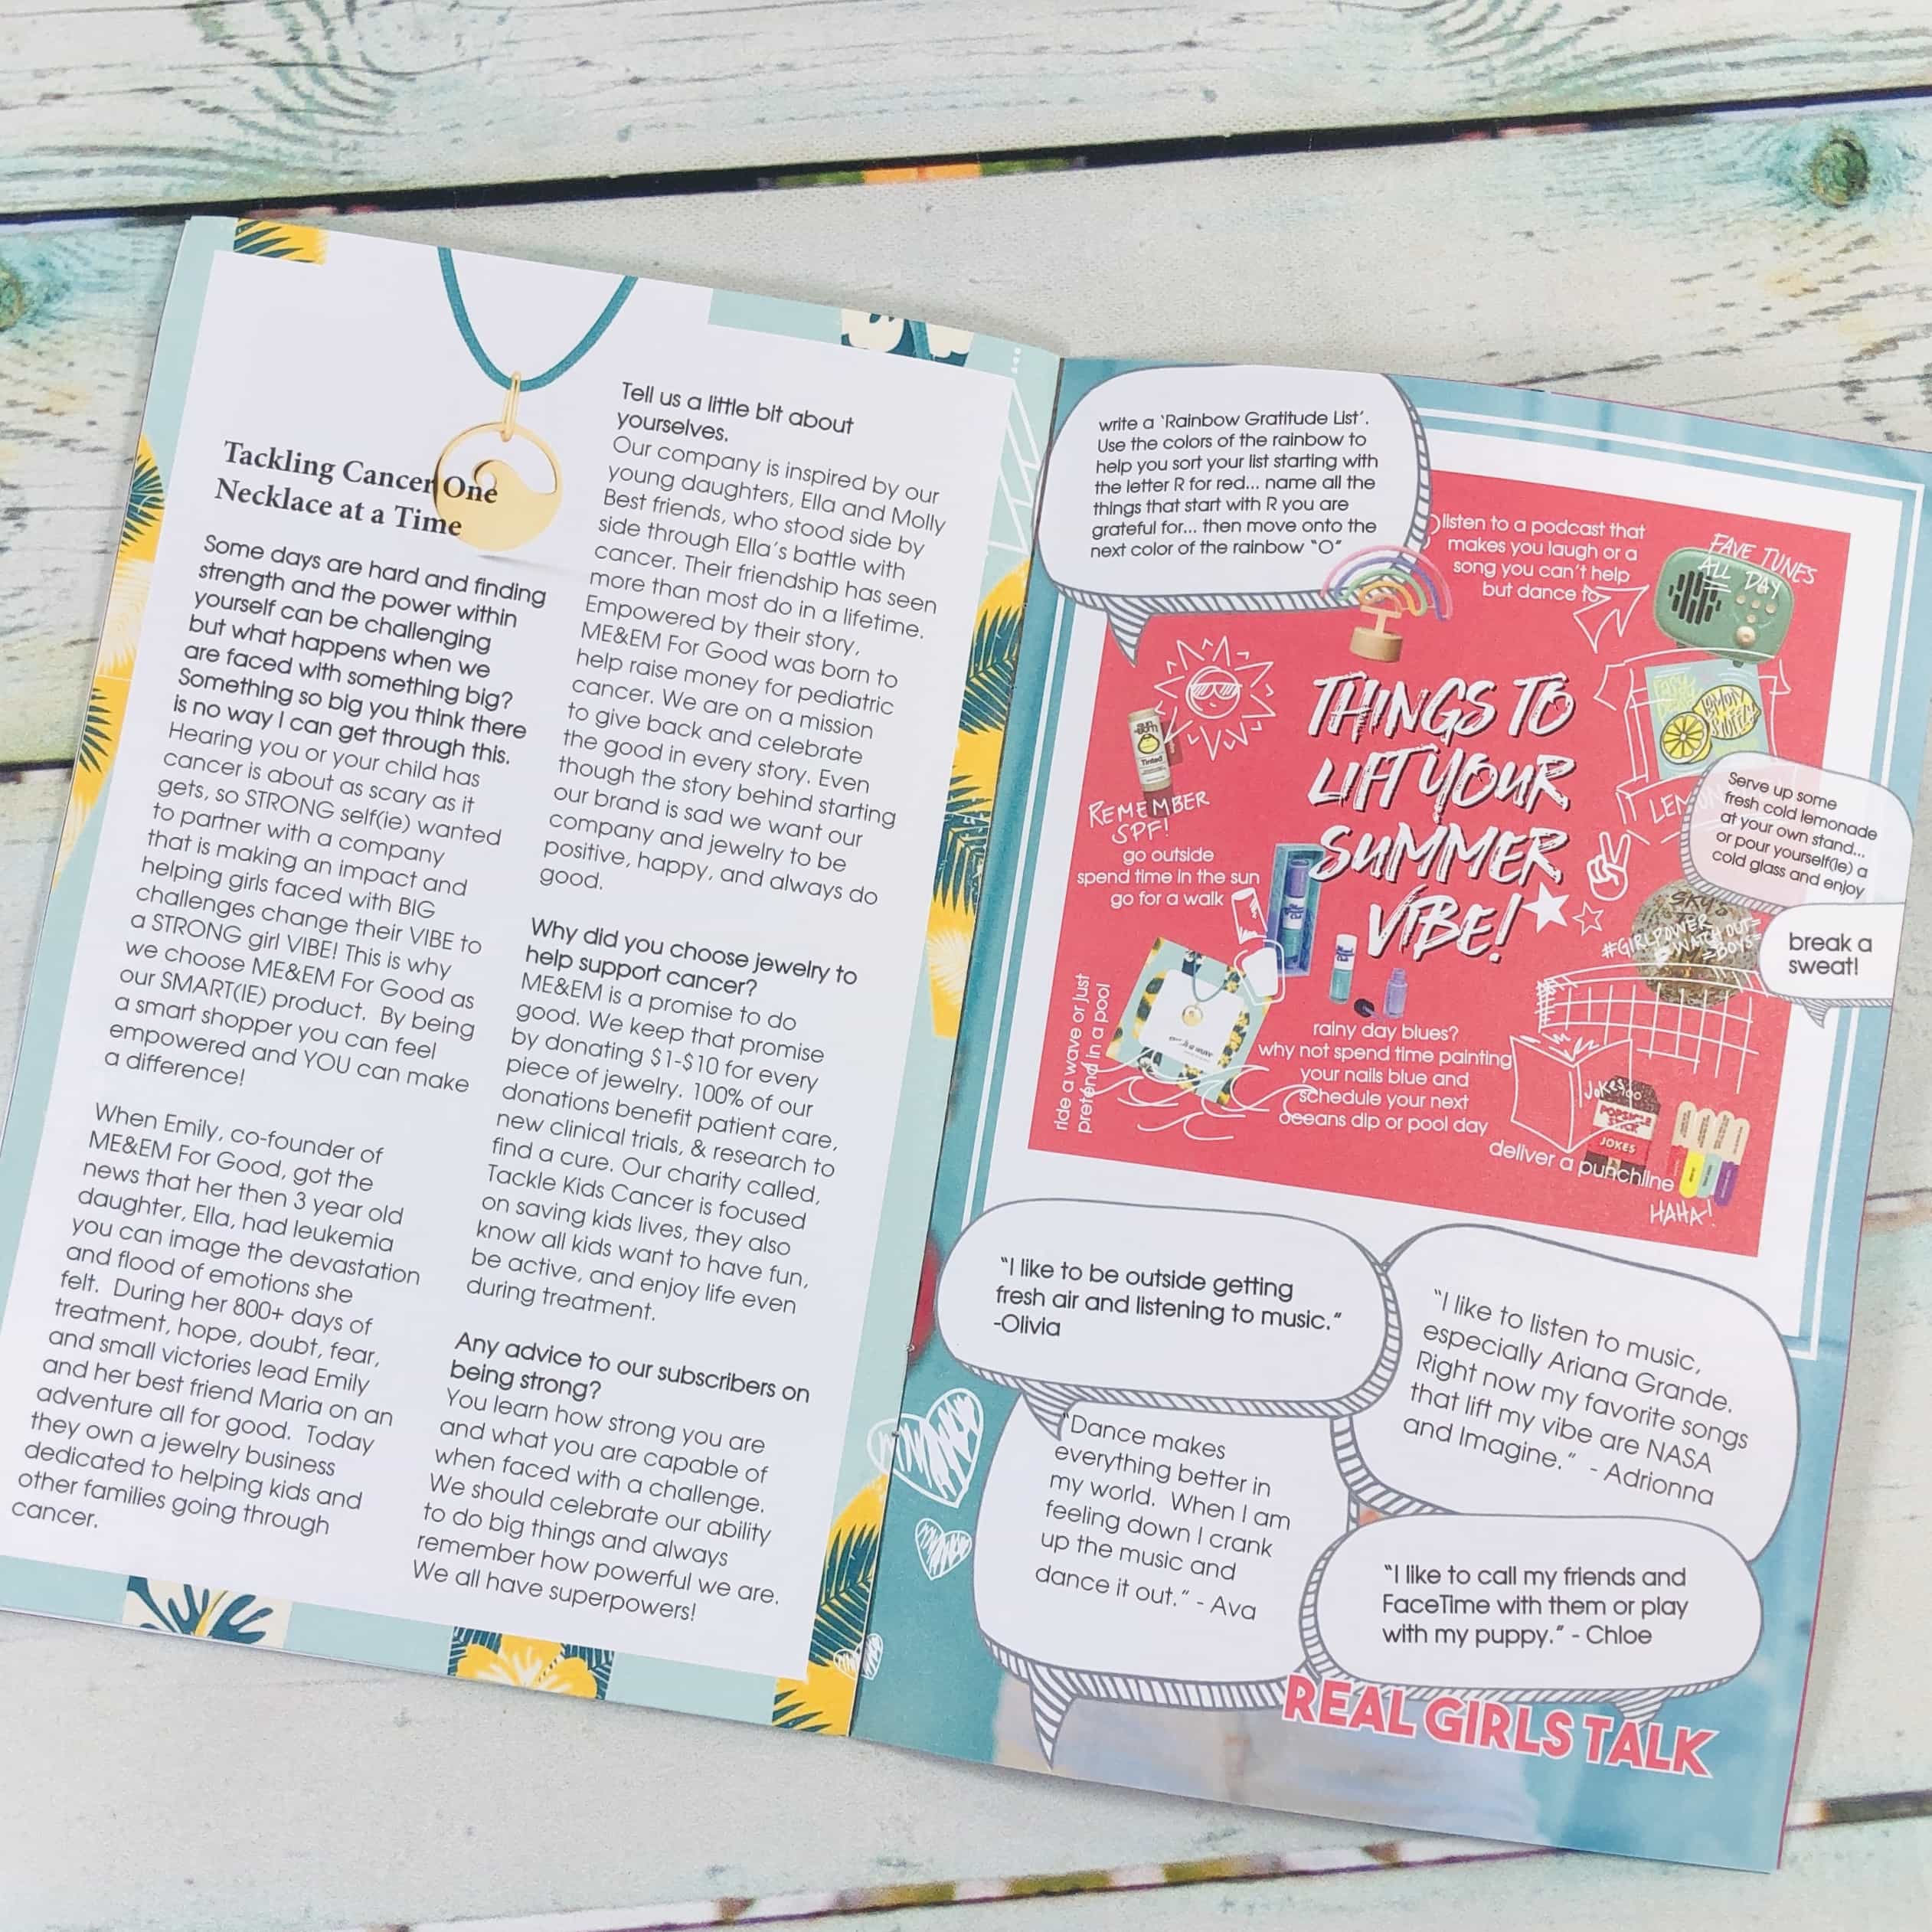 Tackling Cancer One
Necklace at a Time
Some days are hard and finding
strength and the power within
yourself can be challenging
but what happens when we
are faced with something big?
Something so big you think there
is no way I can get through this.
Hearing you or your child has
cancer is about as scary as it
gets, so STRONG self(ie) wanted
to partner with a company
that is making an impact and
helping girls faced with BIG
challenges change their VIBE to
a STRONG girl VIBE! This is why
we choose ME&EM For Good as
our SMART(IE) product. By being
a smart shopper you can feel
empowered and YOU can make
a difference!
When Emily, co-founder of
ME&EM For Good, got the
news that her then 3 year old
daughter, Ella, had leukemia
you can image the devastation
and flood of emotions she
felt. During her 800+ days of
treatment, hope, doubt, fear,
and small victories lead Emily
and her best friend Maria on an
adventure all for good. Today
they own a jewelry business
dedicated to helping kids and
other families going through
cancer.
Tell us a little bit about
yourselves.
Our company is inspired by our
young daughters, Ella and Molly
Best friends, who stood side by
side through Ella's battle with
cancer. Their friendship has seen
more than most do in a lifetime.
Empowered by their story,
ME&EM For Good was born to
help raise money for pediatric
cancer. We are on a mission
to give back and celebrate
the good in every story. Even
though the story behind starting
our brand is sad we want our
company and jewelry to be
positive, happy, and always do
good.
Why did you choose jewelry to
help support cancer?
ME&EM is a promise to do
good. We keep that promise
by donating $1-$10 for every
piece of jewelry. 100% of our
donations benefit patient care,
new clinical trials, & research to
find a cure. Our charity called,
Tackle Kids Cancer is focused
on saving kids lives, they also
know all kids want to have fun,
be active, and enjoy life even
during treatment.
Any advice to our subscribers on
being strong?
You learn how strong you are
and what you are capable of
when faced with a challenge.
We should celebrate our ability
to do big things and always
remember how powerful we are.
We all have superpowers!
write a 'Rainbow Gratitude List'.
Use the colors of the rainbow to
help you sort your list starting with
the letter R for red... name all the
things that start with R you are
grateful for... then move onto the
next color of the rainbow "O"
listen to a podcast that
makes you laugh or a
song you can't help
but dance to
FAVE TUNES
ALL DAY
THINGS TO
LIFT YOUR
SUMMER
VIBE!
sun
bum
Tinted
REMEMBER
SPF!
go outside
spend time in the sun
go for a walk
Serve up some
fresh cold lemonade
at your own stand...
or pour yourself(ie) a
cold glass and enjoy
#GIRLPOWER
WATCH OUT
BOYS
break a
sweat!
ride a wave or just
pretend in a pool
rainy day blues?
why not spend time painting
your nails blue and
schedule your next
oceans dip or pool day
JOKES
100
POPSICLE
STICK
JOKES
deliver a punchline
HAHA!
"I like to be outside getting
fresh air and listening to music."
-Olivia
"I like to listen to music,
especially Ariana Grande.
Right now my favorite songs
that lift my vibe are NASA
and Imagine." - Adrionna
"Dance makes
everything better in
my world. When I am
feeling down I crank
up the music and
dance it out." - Ava
"I like to call my friends and
FaceTime with them or play
with my puppy." - Chloe
REAL GIRLS TALK